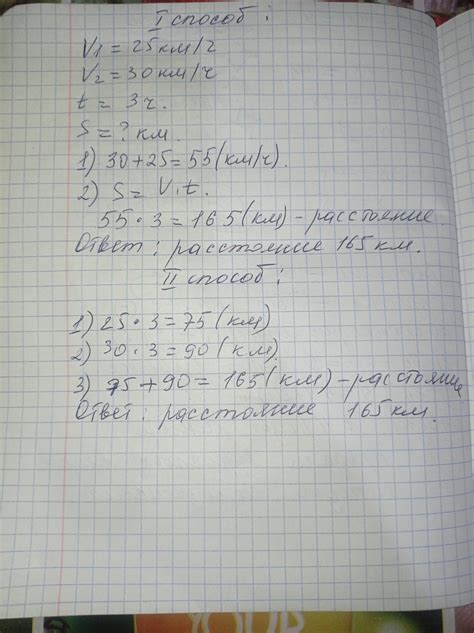 I способ:
V1 = 25 км/ч
V2 = 30 км/ч
t = 3 ч.
S = ? км.
1) 30 + 25 = 55 (км/ч).
2) S = V · t.
55 · 3 = 165 (км) – расстояние.
Ответ: расстояние 165 км.
II способ:
1) 25 · 3 = 75 (км)
2) 30 · 3 = 90 (км).
3) 75 + 90 = 165 (км) – расстояние
Ответ: расстояние 165 км.
YOUR